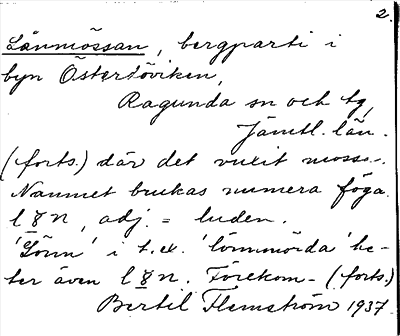 2.
Länmössan, bergparti i
byn Östertöviken,
Ragunda sn och tg,
Jämtl. län.
(forts.) där det vuxit moss-.
Namnet brukas numera föga.
l8n, adj. = luden.
'Lönn' i t.ex. 'lönnmörda' he-
ter även l8n. Förekom- (forts.)
Bertil Flemström 1937